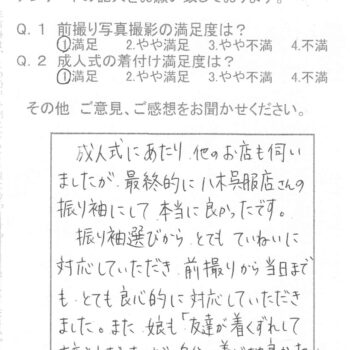 Q.1 前撮り写真撮影の満足度は?
①満足 2.やや満足 3.やや不満 4.不満
Q.2 成人式の着付け満足度は?
①満足 2.やや満足 3.やや不満 4.不満
その他 ご意見、ご感想をお聞かせください。
成人式にあたり、他のお店も伺い
ましたが、最終的に八木呉服店さんの
振り袖にして、本当に良かったです。
振り袖選びから、とても ていねいに
対応していただき、前撮りから当日まで
も、とても良心的に対応していただき
ました。また、娘も「友達が着くずれして